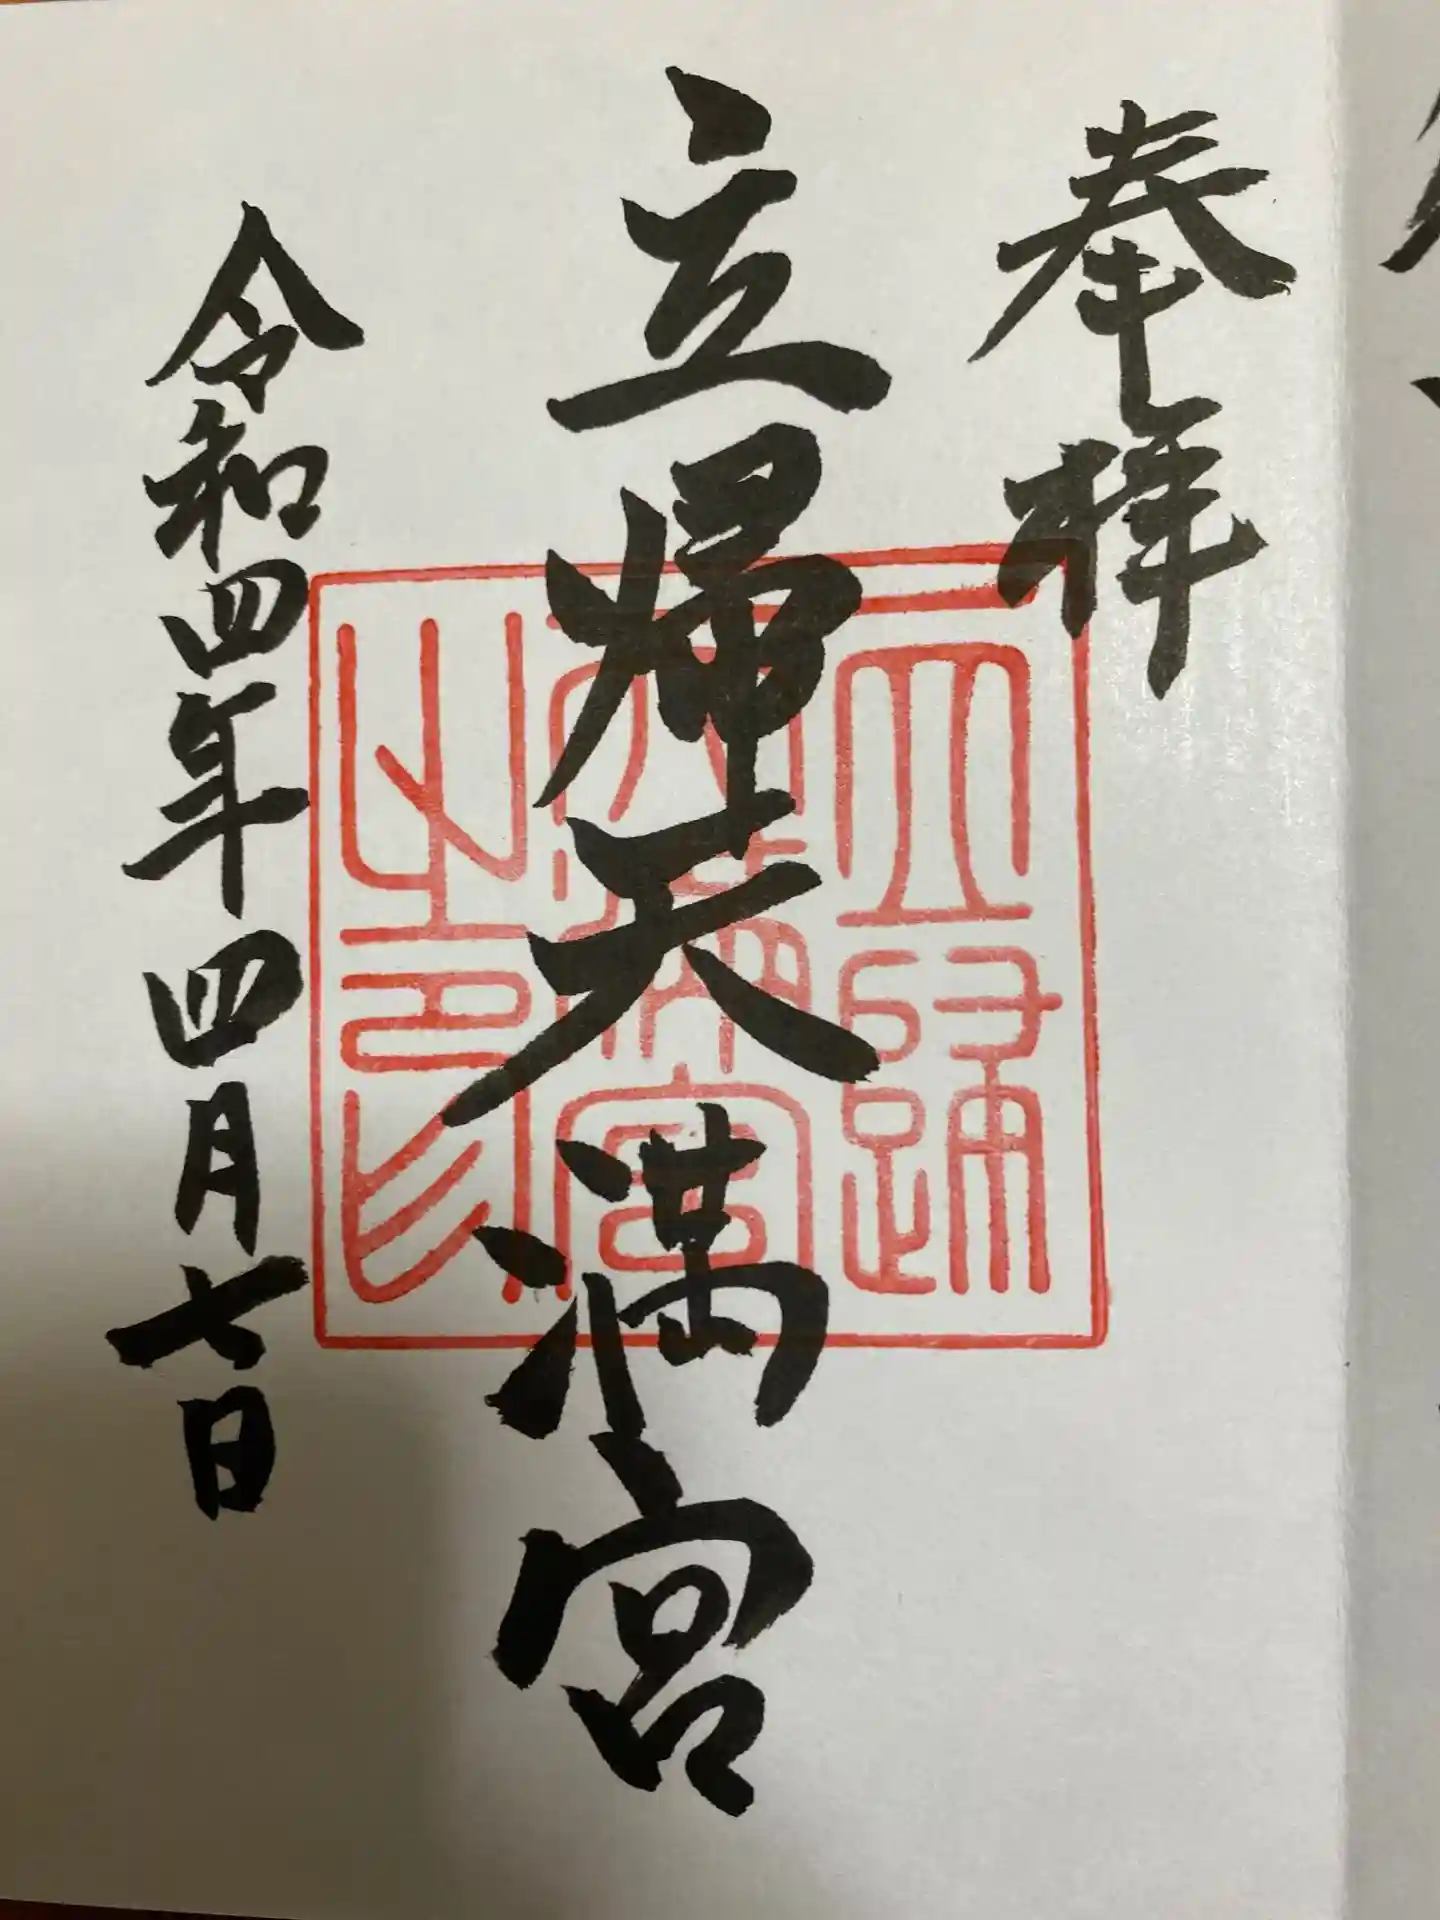 奉拝
立帰天満宮
令和四年四月七日
立歸天満宮之印